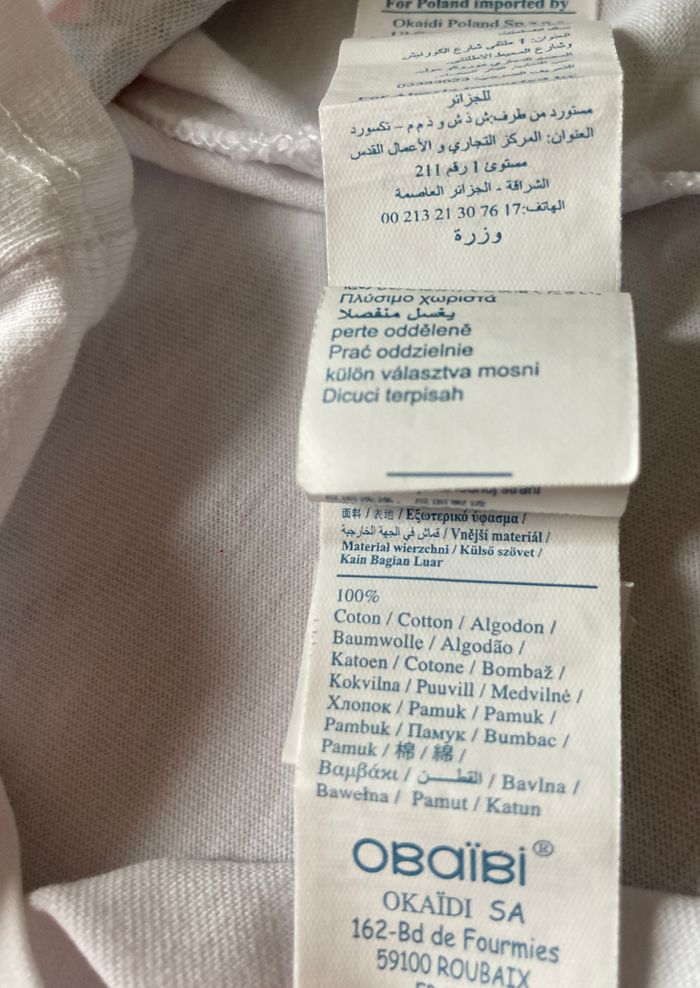 For Poland imported by
Okaïdi Poland Sp.z.o.o
العنوان: 1 ملتقى شارع الكورنيش
وشارع المحيط الأطلنتي
للجزائر
مستورد من طرف:ش ذ ش و ذ م م – تكسورد
العنوان: المركز التجاري و الأعمال القدس
مستوى 1 رقم 211
الشراقة - الجزائر العاصمة
الهاتف:17 76 30 21 213 00
وزرة
Πλύσιμο χωριστά
يغسل منفصلا
perte odděleně
Prać oddzielnie
külön választva mosni
Dicuci terpisah
面料 / 表地 / Εξωτερικό ύφασμα /
قماش في الجهة الخارجية / Vnější materiál /
Materiał wierzchni / Külső szövet /
Kain Bagian Luar
100%
Coton / Cotton / Algodon /
Baumwolle / Algodão /
Katoen / Cotone / Bombaž /
Kokvilna / Puuvill / Medvilnė /
Хлопок / Pamuk / Pamuk /
Pambuk / Памук / Bumbac /
Pamuk / 棉 / 綿 /
Βαμβάκι / القطــــن / Bavlna /
Bawełna / Pamut / Katun
OBaïBi®
OKAÏDI SA
162-Bd de Fourmies
59100 ROUBAIX